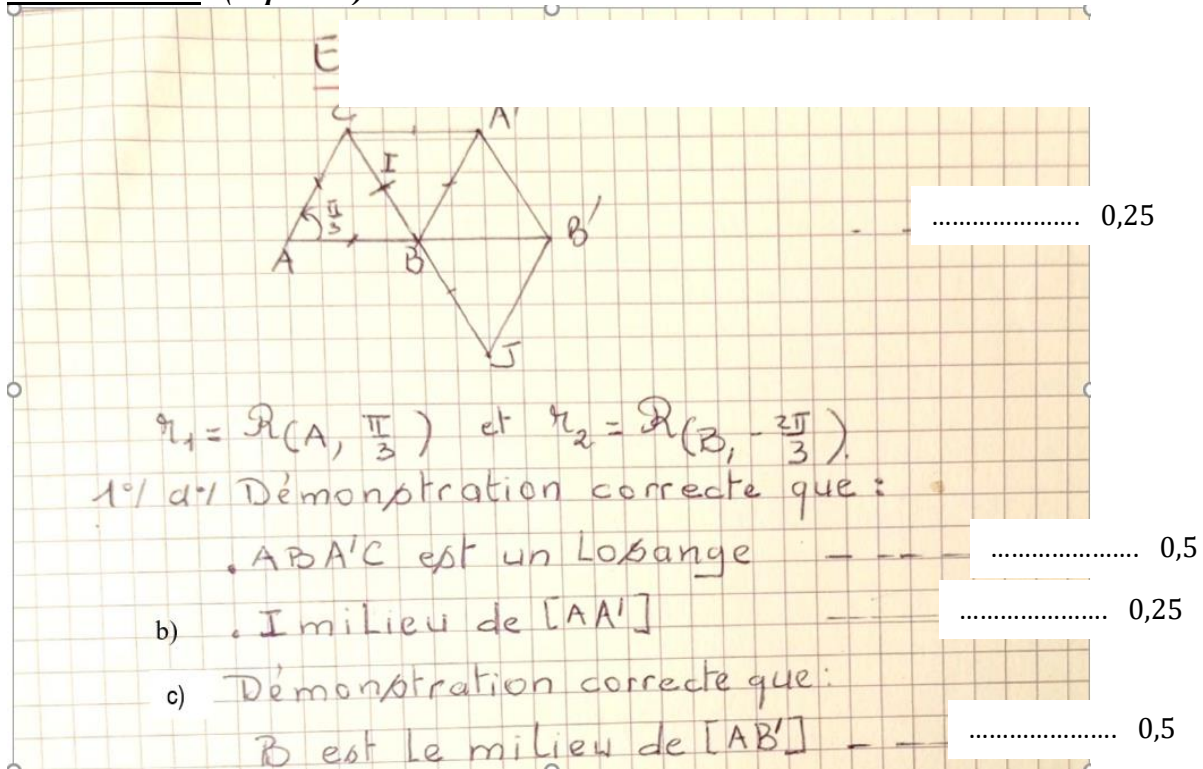 E
C A'
I
π/3
A B B' ..................... 0,25
J
r₁ = R(A, π/3) et r₂ = R(B, -2π/3).
1°/ a°/ Démonstration correcte que :
. ABA'C est un Losange _ _ _ ..................... 0,5
b) . I milieu de [AA'] ..................... 0,25
c) Démonstration correcte que:
B est le milieu de [AB'] _ _ ..................... 0,5